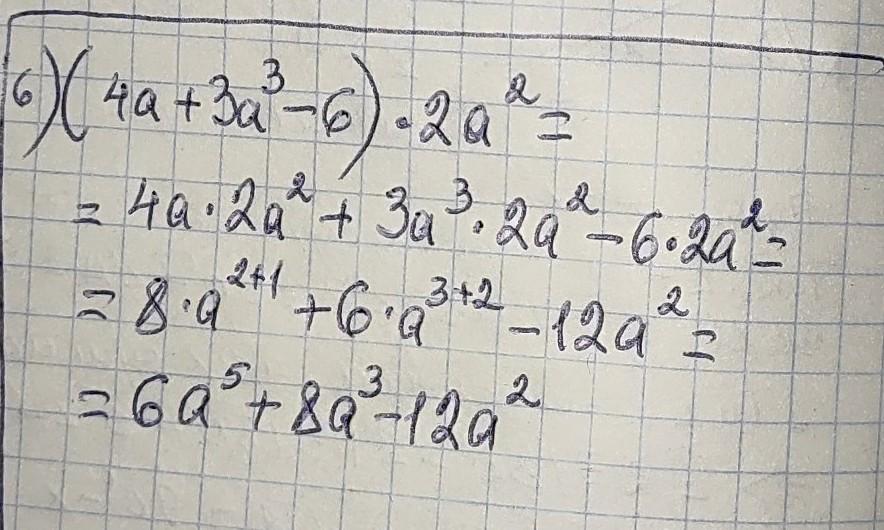 б) (4a + 3a³ - 6) · 2a² =
= 4a · 2a² + 3a³ · 2a² - 6 · 2a² =
= 8 · a²⁺¹ + 6 · a³⁺² - 12a² =
= 6a⁵ + 8a³ - 12a²